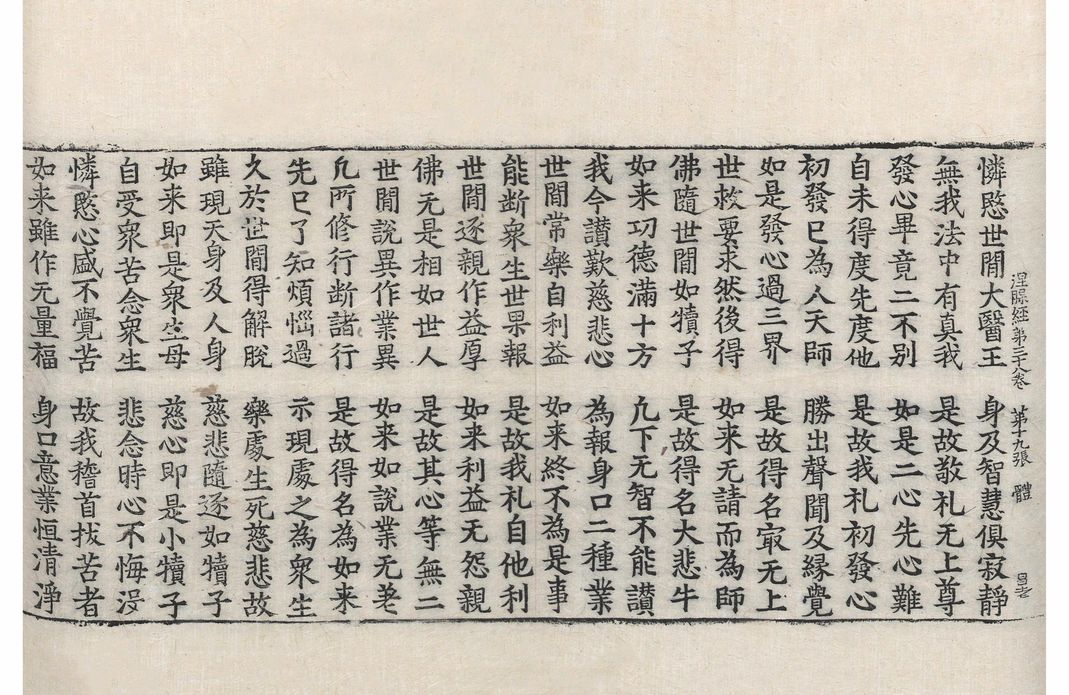 涅槃経第三十八卷 第十九張 體
憐愍世間大醫王 身及智慧俱寂靜
無我法中有真我 是故敬礼无上尊
發心畢竟二不別 如是二心先心難
自未得度先度他 是故我礼初發心
初發已為人天師 勝出聲聞及緣覺
如是發心過三界 是故得名㝡无上
世救要求然後得 如来无請而為師
佛隨世間如犢子 是故得名大悲牛
如来功德滿十方 凡下无智不能讃
我今讃歎慈悲心 為報身口二種業
世間常樂自利益 如来終不為是事
能断衆生世果報 是故我礼自他利
世間逐親作益厚 如来利益无怨親
佛无是相如世人 是故其心等無二
世間說異作業異 如来如說業无差
凡所修行断諸行 是故得名為如来
先已了知煩惱過 示現處之為衆生
久於世間得解脫 樂處生死慈悲故
雖現天身及人身 慈悲隨逐如犢子
如来即是衆生母 慈心即是小犢子
自受衆苦念衆生 悲念時心不悔沒
憐愍心盛不覺苦 故我稽首拔苦者
如来雖作无量福 身口意業恒清淨